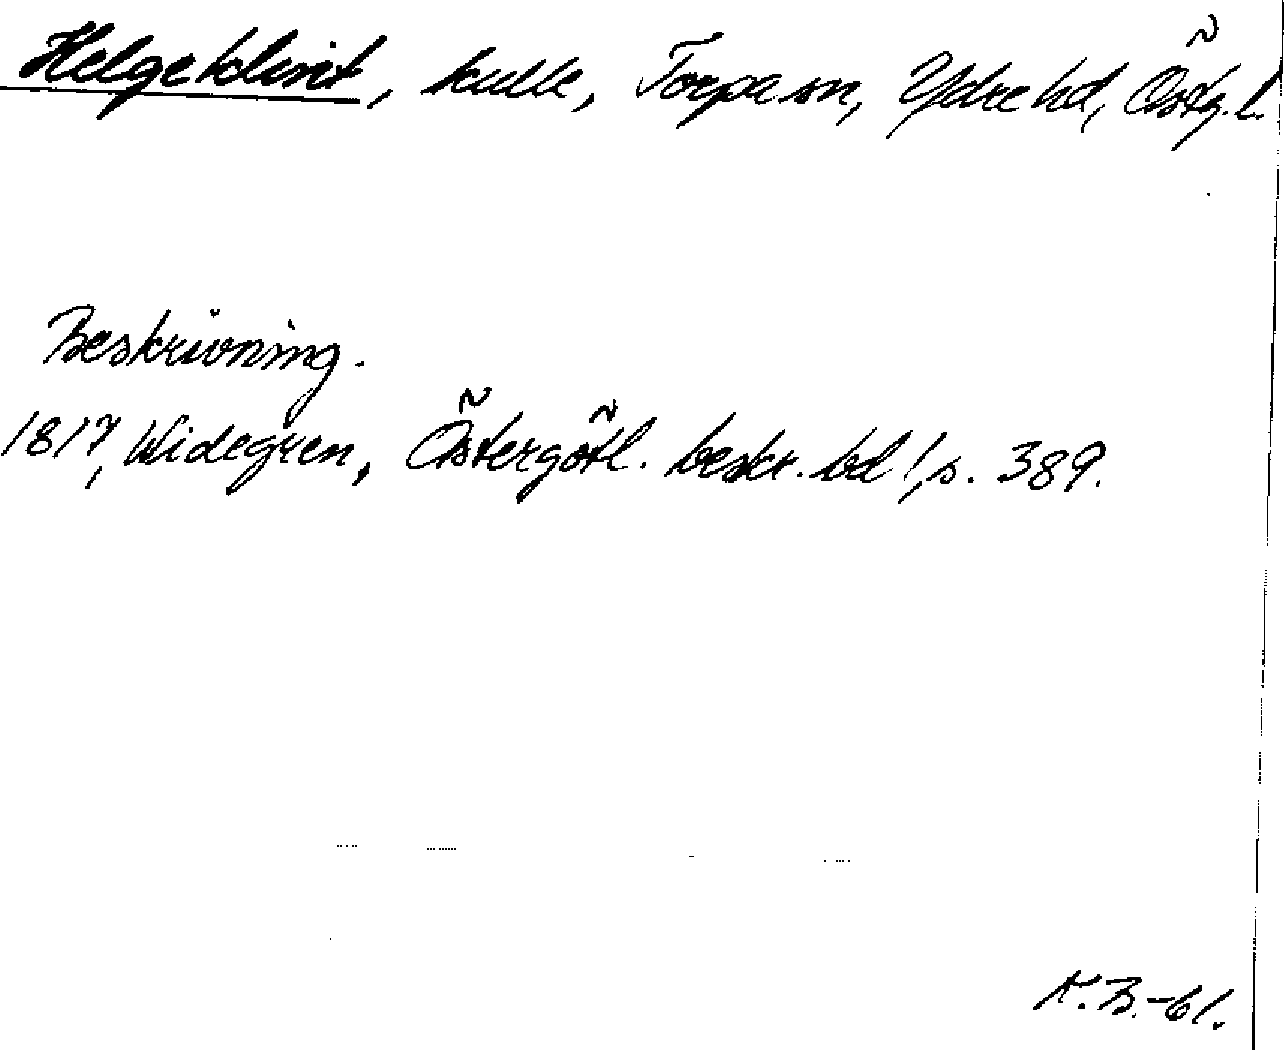 Helgeklint, kulle, Torpa sn, Ydre hd, Östg. l.
Beskrivning.
1817, Widegren, Östergötl. beskr. bd 1, s. 389.
K.B.-61.